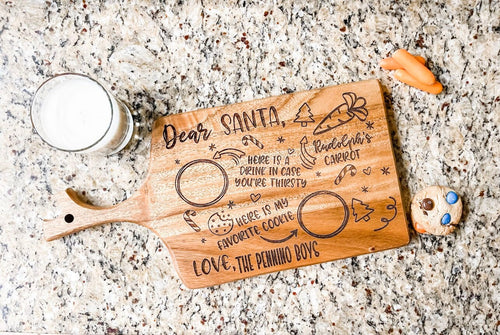 Dear SANTA,
RUDOLPH'S
CARROT
HERE IS A
DRINK IN CASE
YOU'RE THIRSTY
HERE IS MY
FAVORITE COOKIE
LOVE, THE PENNINO BOYS